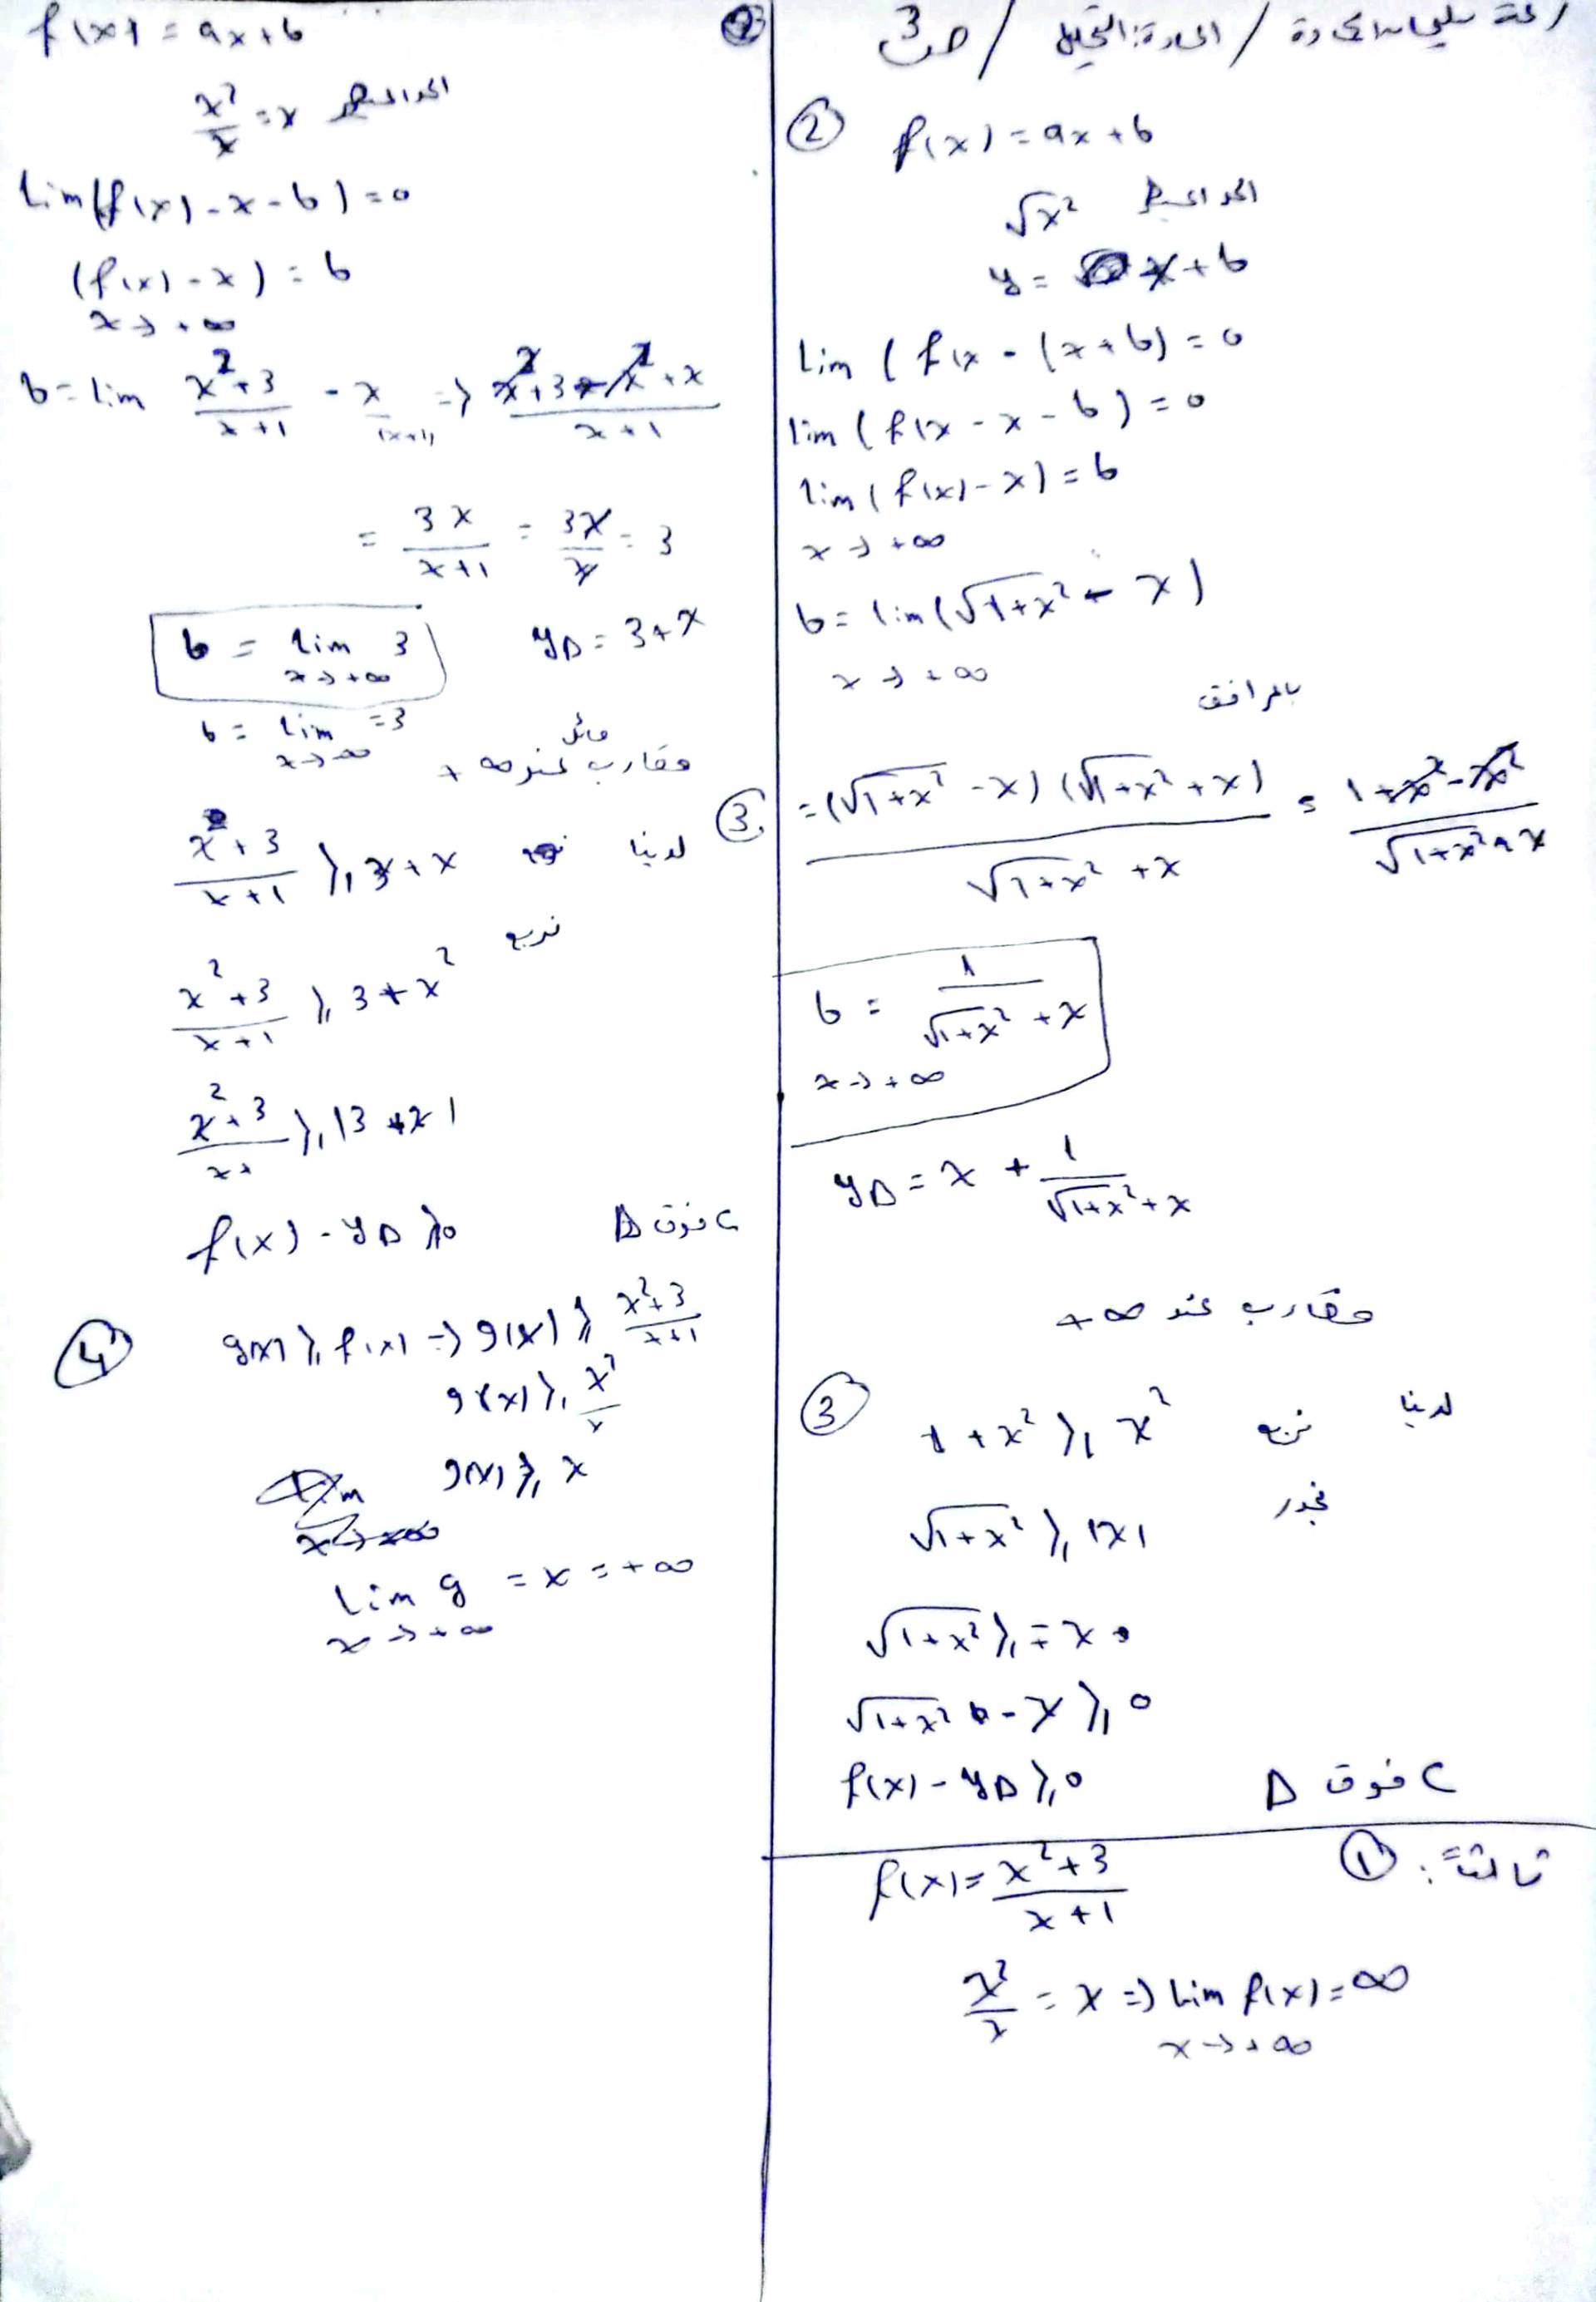 المادة: التحليل / ص3
② f(x) = ax + b
√x²
y = x + b
lim ( f(x - (x + b) = 0
lim ( f(x - x - b) = 0
lim ( f(x) - x) = b
x → +∞
b = lim (√1+x² - x)
x → +∞
بالمرافق
= (√1+x² - x) (√1+x² + x) / √1+x² + x = 1 + x² - x² / √1+x² + x
b = 1 / √1+x² + x
x → +∞
y∆ = x + 1 / √1+x² + x
مقارب عند +∞
③ لدينا نربع 1 + x² ⩾ x²
نجذر √1+x² ⩾ |x|
√1+x² ⩾ = x
√1+x² - x ⩾ 0
f(x) - y∆ ⩾ 0 C فوق ∆
ثالثاً: ① f(x) = x²+3 / x+1
x²/x = x ⇒ lim f(x) = ∞
x → +∞
② f(x) = ax + b
x²/x = x
lim (f(x) - x - b) = 0
(f(x) - x) = b
x → +∞
b = lim x²+3 / x+1 - x / (x+1) ⇒ x² + 3 - x² + x / x+1
= 3x / x+1 = 3x / x = 3
b = lim 3 y∆ = 3 + x
x → +∞
b = lim = 3
x → ∞
مقارب مائل عند +∞
③ لدينا x²+3 / x+1 ⩾ 3 + x
نربع
x²+3 / x+1 ⩾ 3 + x²
x²+3 / x+ ⩾ |3 + x|
f(x) - y∆ ⩾ 0 C فوق ∆
④ g(x) ⩾ f(x) ⇒ g(x) ⩾ x²+3 / x+1
g(x) ⩾ x²/x
g(x) ⩾ x
lim g = x = +∞
x → +∞